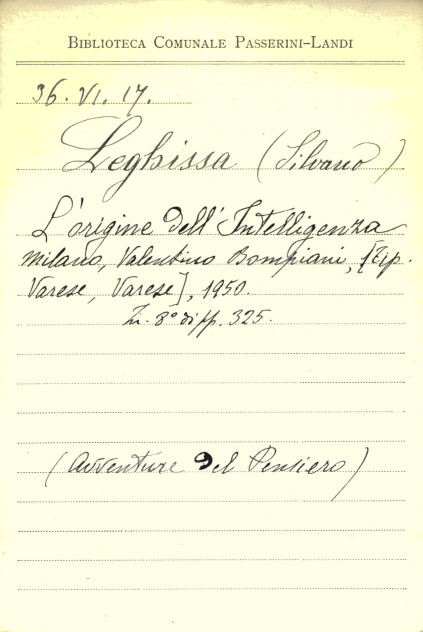 BIBLIOTECA COMUNALE PASSERINI-LANDI
36. VI. 17.
Leghissa (Silvano)
L'origine dell'Intelligenza
Milano, Valentino Bompiani, [Tip.
Varese, Varese], 1950.
In 8° di pp. 325.
(Avventure del Pensiero)